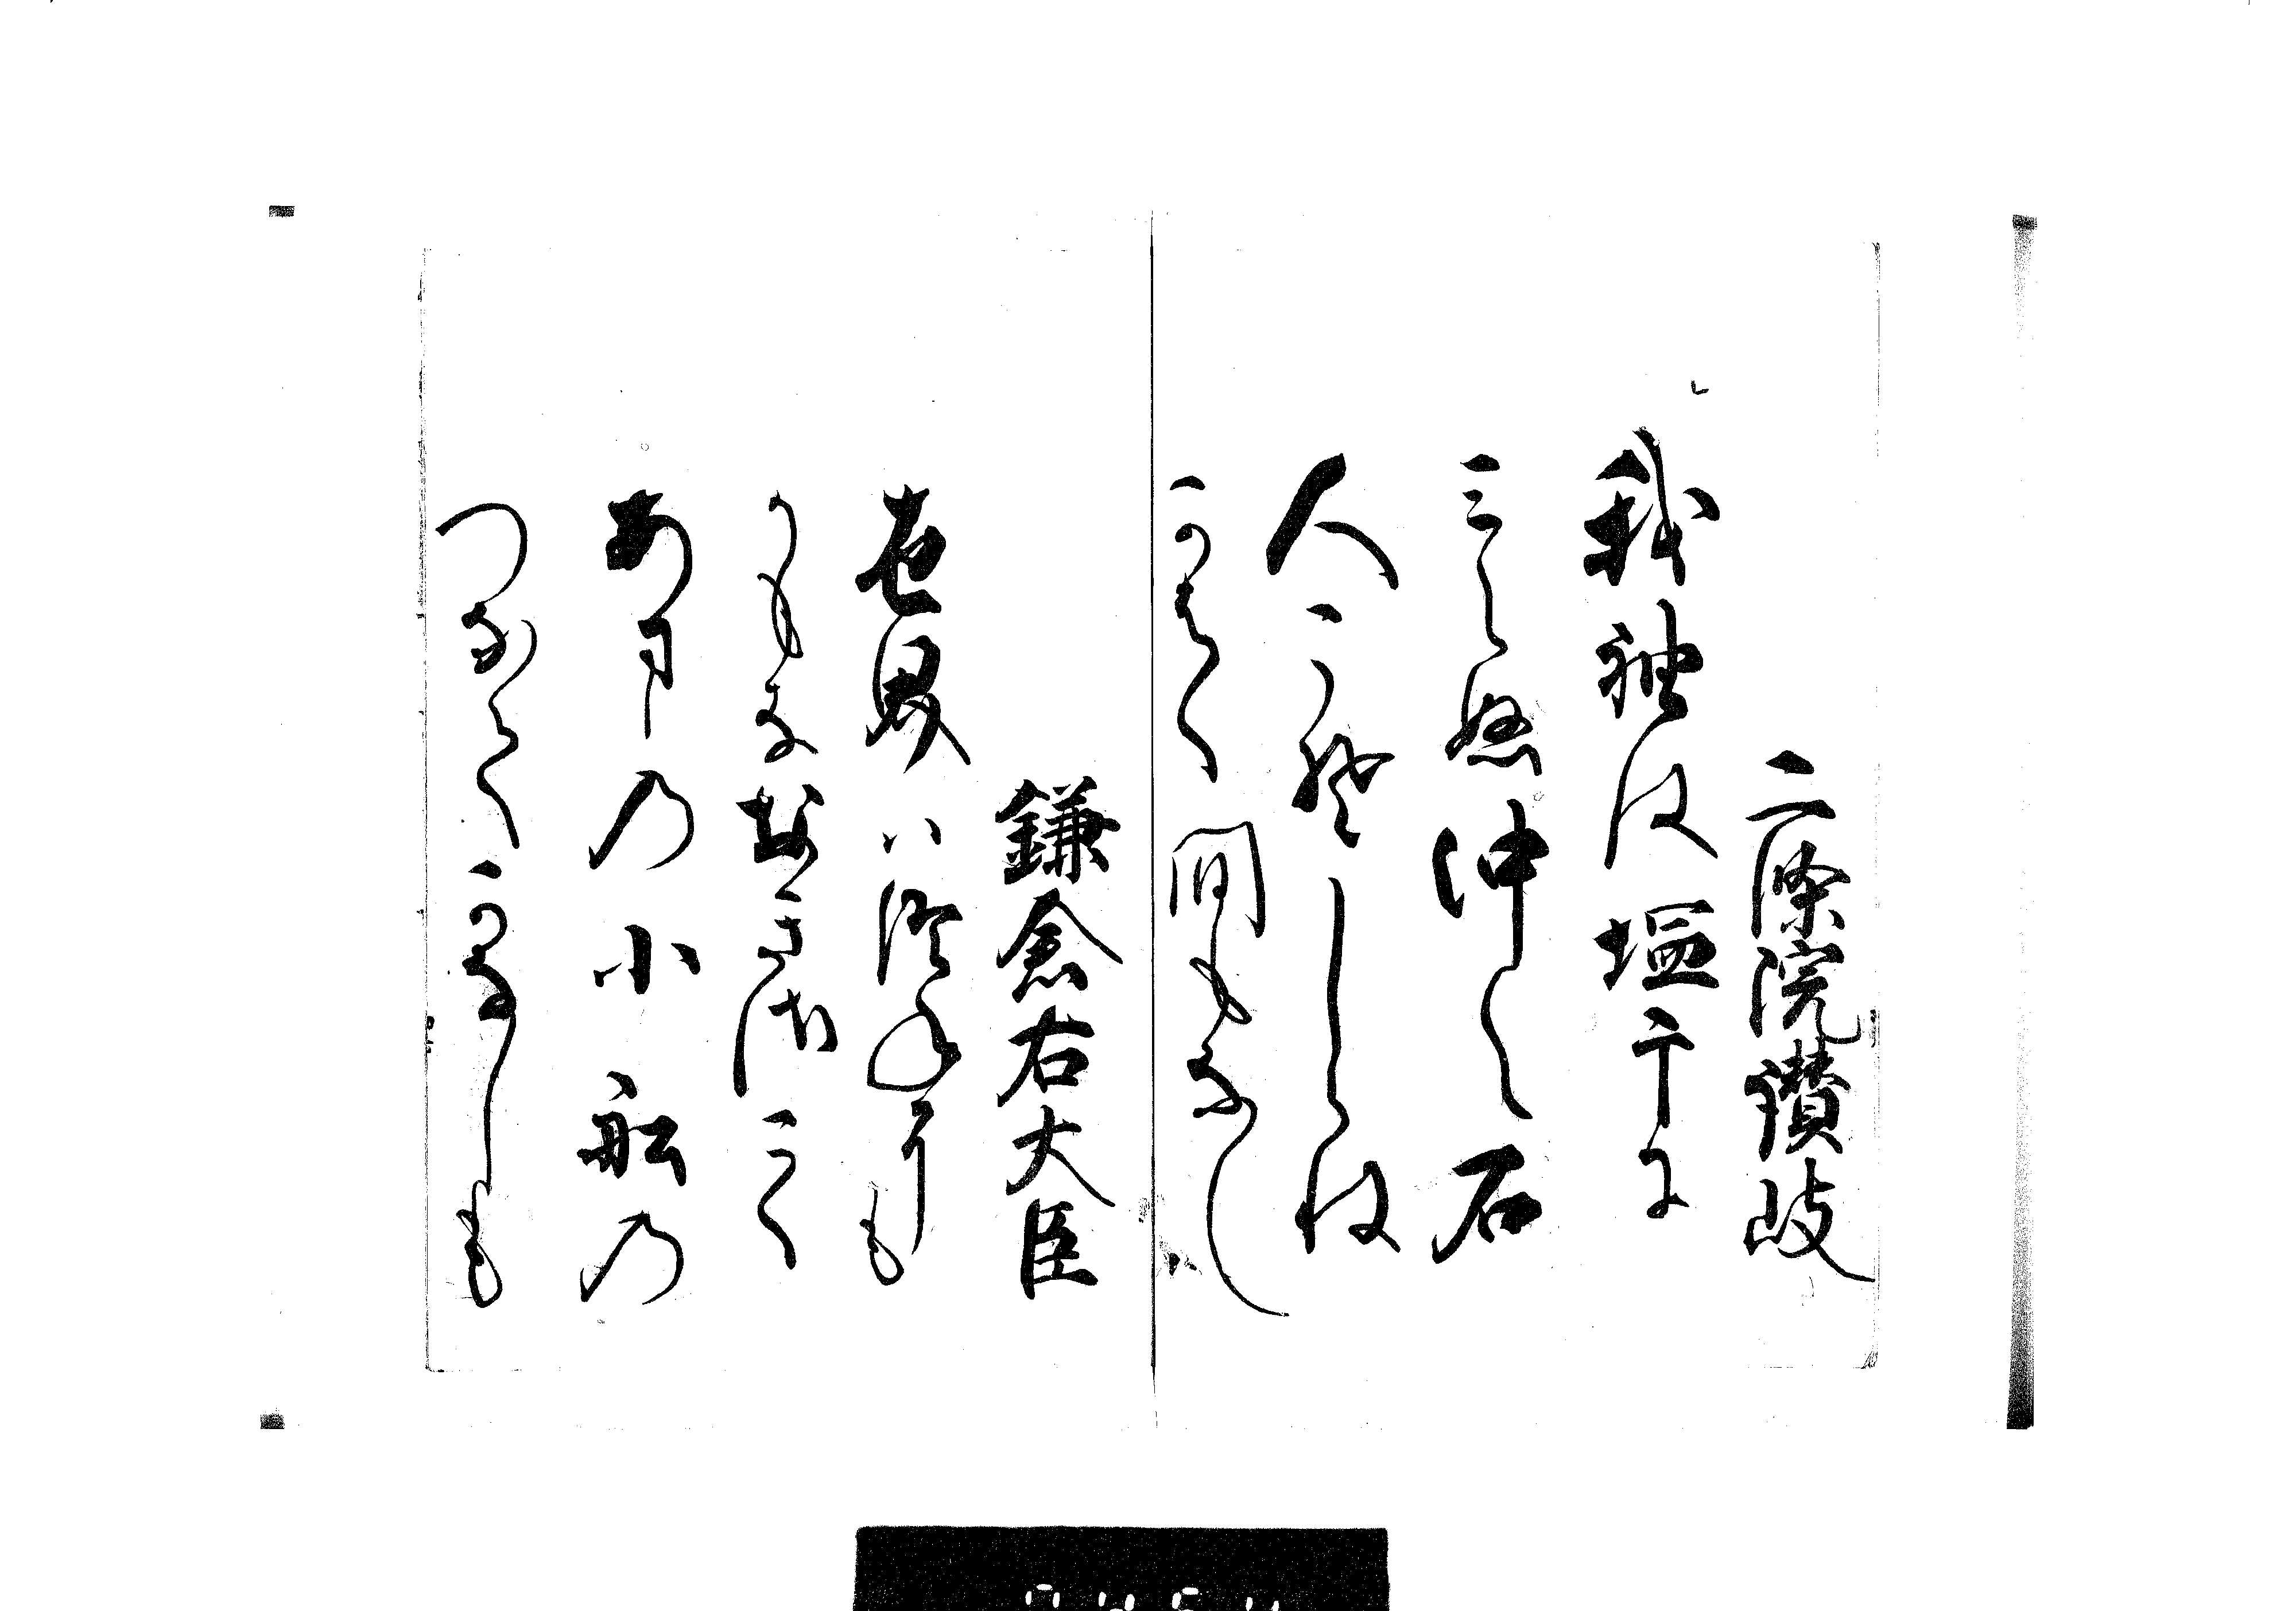 二條院讃岐
我袖は塩干に
ミえぬ沖の石
人こそしらね
かはく間もなし
鎌倉右大臣
世界ハ徒ねにも
かもななきさこく
あまの小舩の
つなてかなしも